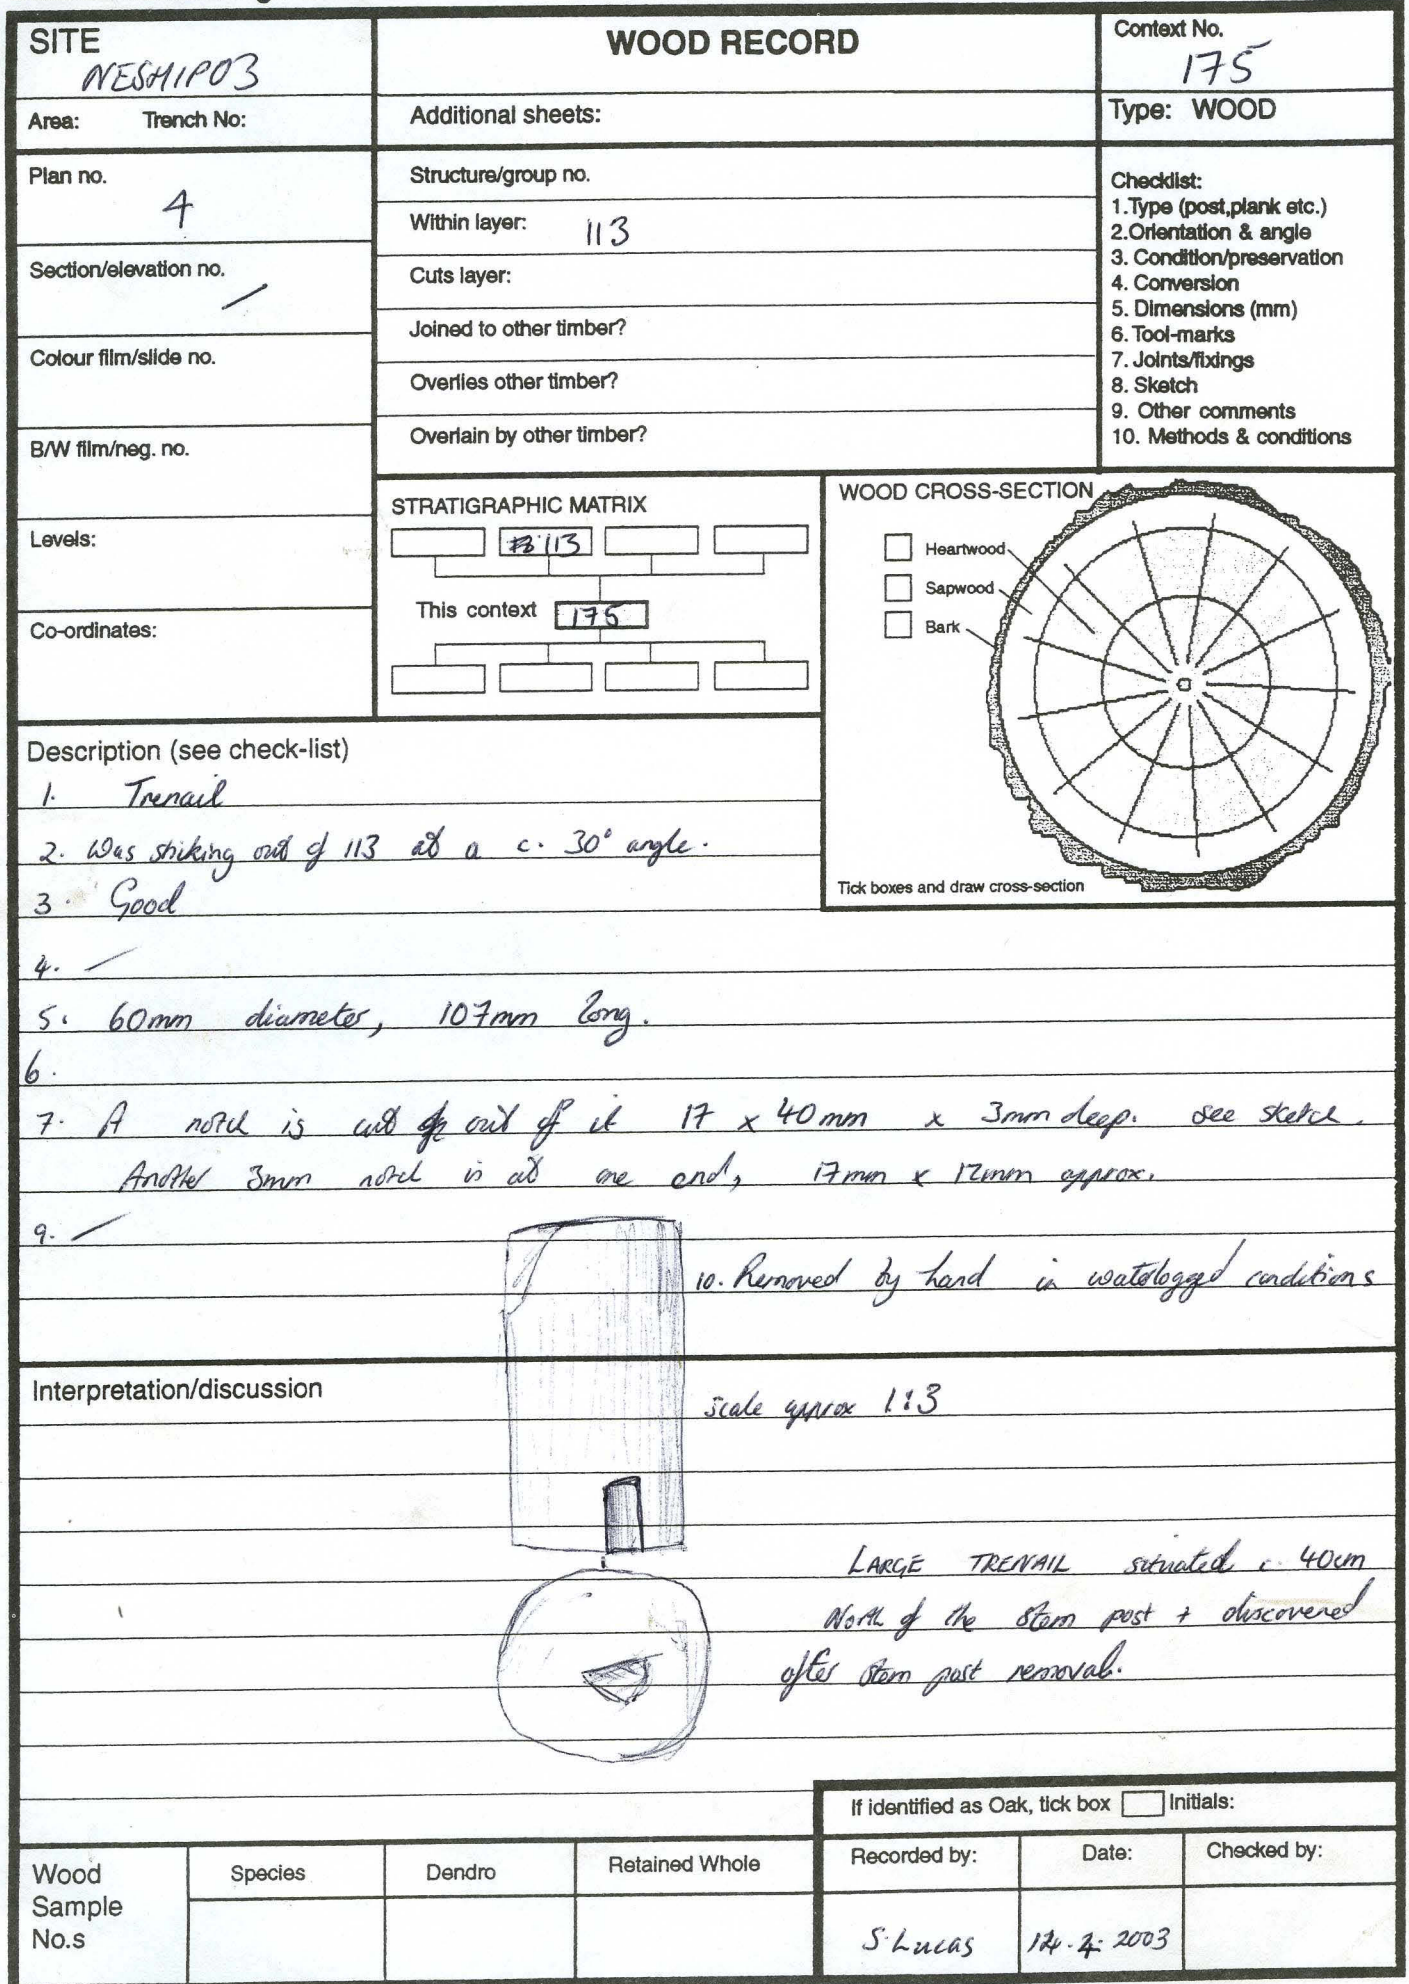 SITE
NESHIP03
WOOD RECORD
Context No.
175
Area: Trench No:
Additional sheets:
Type: WOOD
Plan no.
4
Structure/group no.
Within layer: 113
Section/elevation no.
/
Cuts layer:
Joined to other timber?
Colour film/slide no.
Overlies other timber?
B/W film/neg. no.
Overlain by other timber?
Checklist:
1.Type (post,plank etc.)
2.Orientation & angle
3. Condition/preservation
4. Conversion
5. Dimensions (mm)
6. Tool-marks
7. Joints/fixings
8. Sketch
9. Other comments
10. Methods & conditions
Levels:
Co-ordinates:
STRATIGRAPHIC MATRIX
113
This context 175
WOOD CROSS-SECTION
Heartwood
Sapwood
Bark
Tick boxes and draw cross-section
Description (see check-list)
1. Trenail
2. Was stiking out of 113 at a c. 30° angle.
3. Good
4. /
5. 60mm diameter, 107mm long.
6.
7. A notch is cut out of it 17 x 40mm x 3mm deep. see sketch.
Another 3mm notch is at one end, 17mm x 12mm approx.
9. /
10. Removed by hand in waterlogged conditions
Interpretation/discussion
scale approx 1:3
LARGE TRENAIL situated c. 40cm
North of the stem post + discovered
after stem post removal.
If identified as Oak, tick box Initials:
Wood
Sample
No.s
Species
Dendro
Retained Whole
Recorded by:
S. Lucas
Date:
14.2.2003
Checked by: